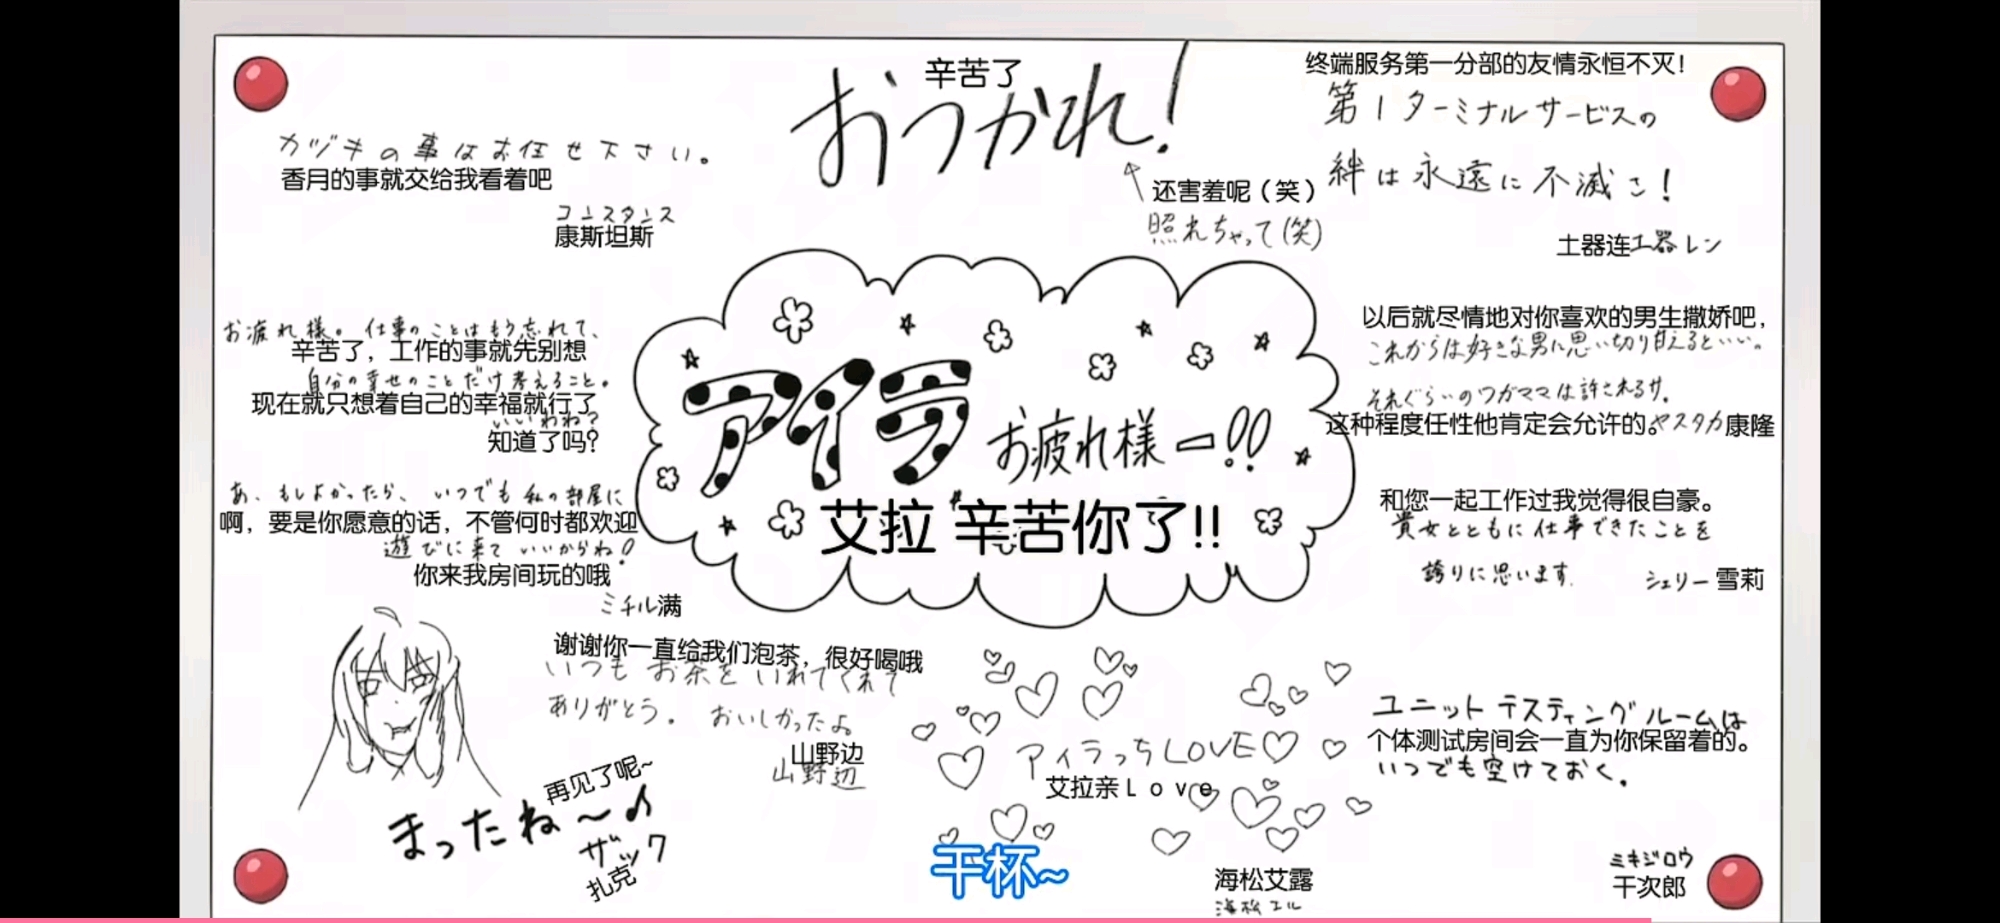 辛苦了
おつかれ!
カヅキの事はお任せ下さい。
香月的事就交给我看着吧
コンスタンス
康斯坦斯
还害羞呢（笑）
照れちゃって(笑)
终端服务第一分部的友情永恒不灭!
第1ターミナルサービスの
絆は永遠に不滅さ!
土器连土器レン
お疲れ様。仕事のことはもう忘れて、
辛苦了，工作的事就先别想
自分の幸せのことだけ考えること。
现在就只想着自己的幸福就行了
いいわね?
知道了吗?
あ、もしよかったら、いつでも私の部屋に
啊，要是你愿意的话，不管何时都欢迎
遊びに来ていいからね!
你来我房间玩的哦
ミチル满
アイラ お疲れ様ー!!
艾拉 辛苦你了!!
以后就尽情地对你喜欢的男生撒娇吧，
これからは好きな男に思い切り甘えるといい。
それぐらいのワガママは許されるサ。
这种程度任性他肯定会允许的。ヤスタカ康隆
和您一起工作过我觉得很自豪。
貴女とともに仕事できたことを
誇りに思います。
シェリー 雪莉
谢谢你一直给我们泡茶，很好喝哦
いつもお茶をいれてくれて
ありがとう。おいしかったよ。
山野边
山野辺
再见了呢~
まったね〜♪
ザック
扎克
アイラっちLOVE♡
艾拉亲Ｌｏｖｅ
海松艾露
海松エル
ユニットテスティングルームは
个体测试房间会一直为你保留着的。
いつでも空けておく。
ミキジロウ
干次郎
干杯~